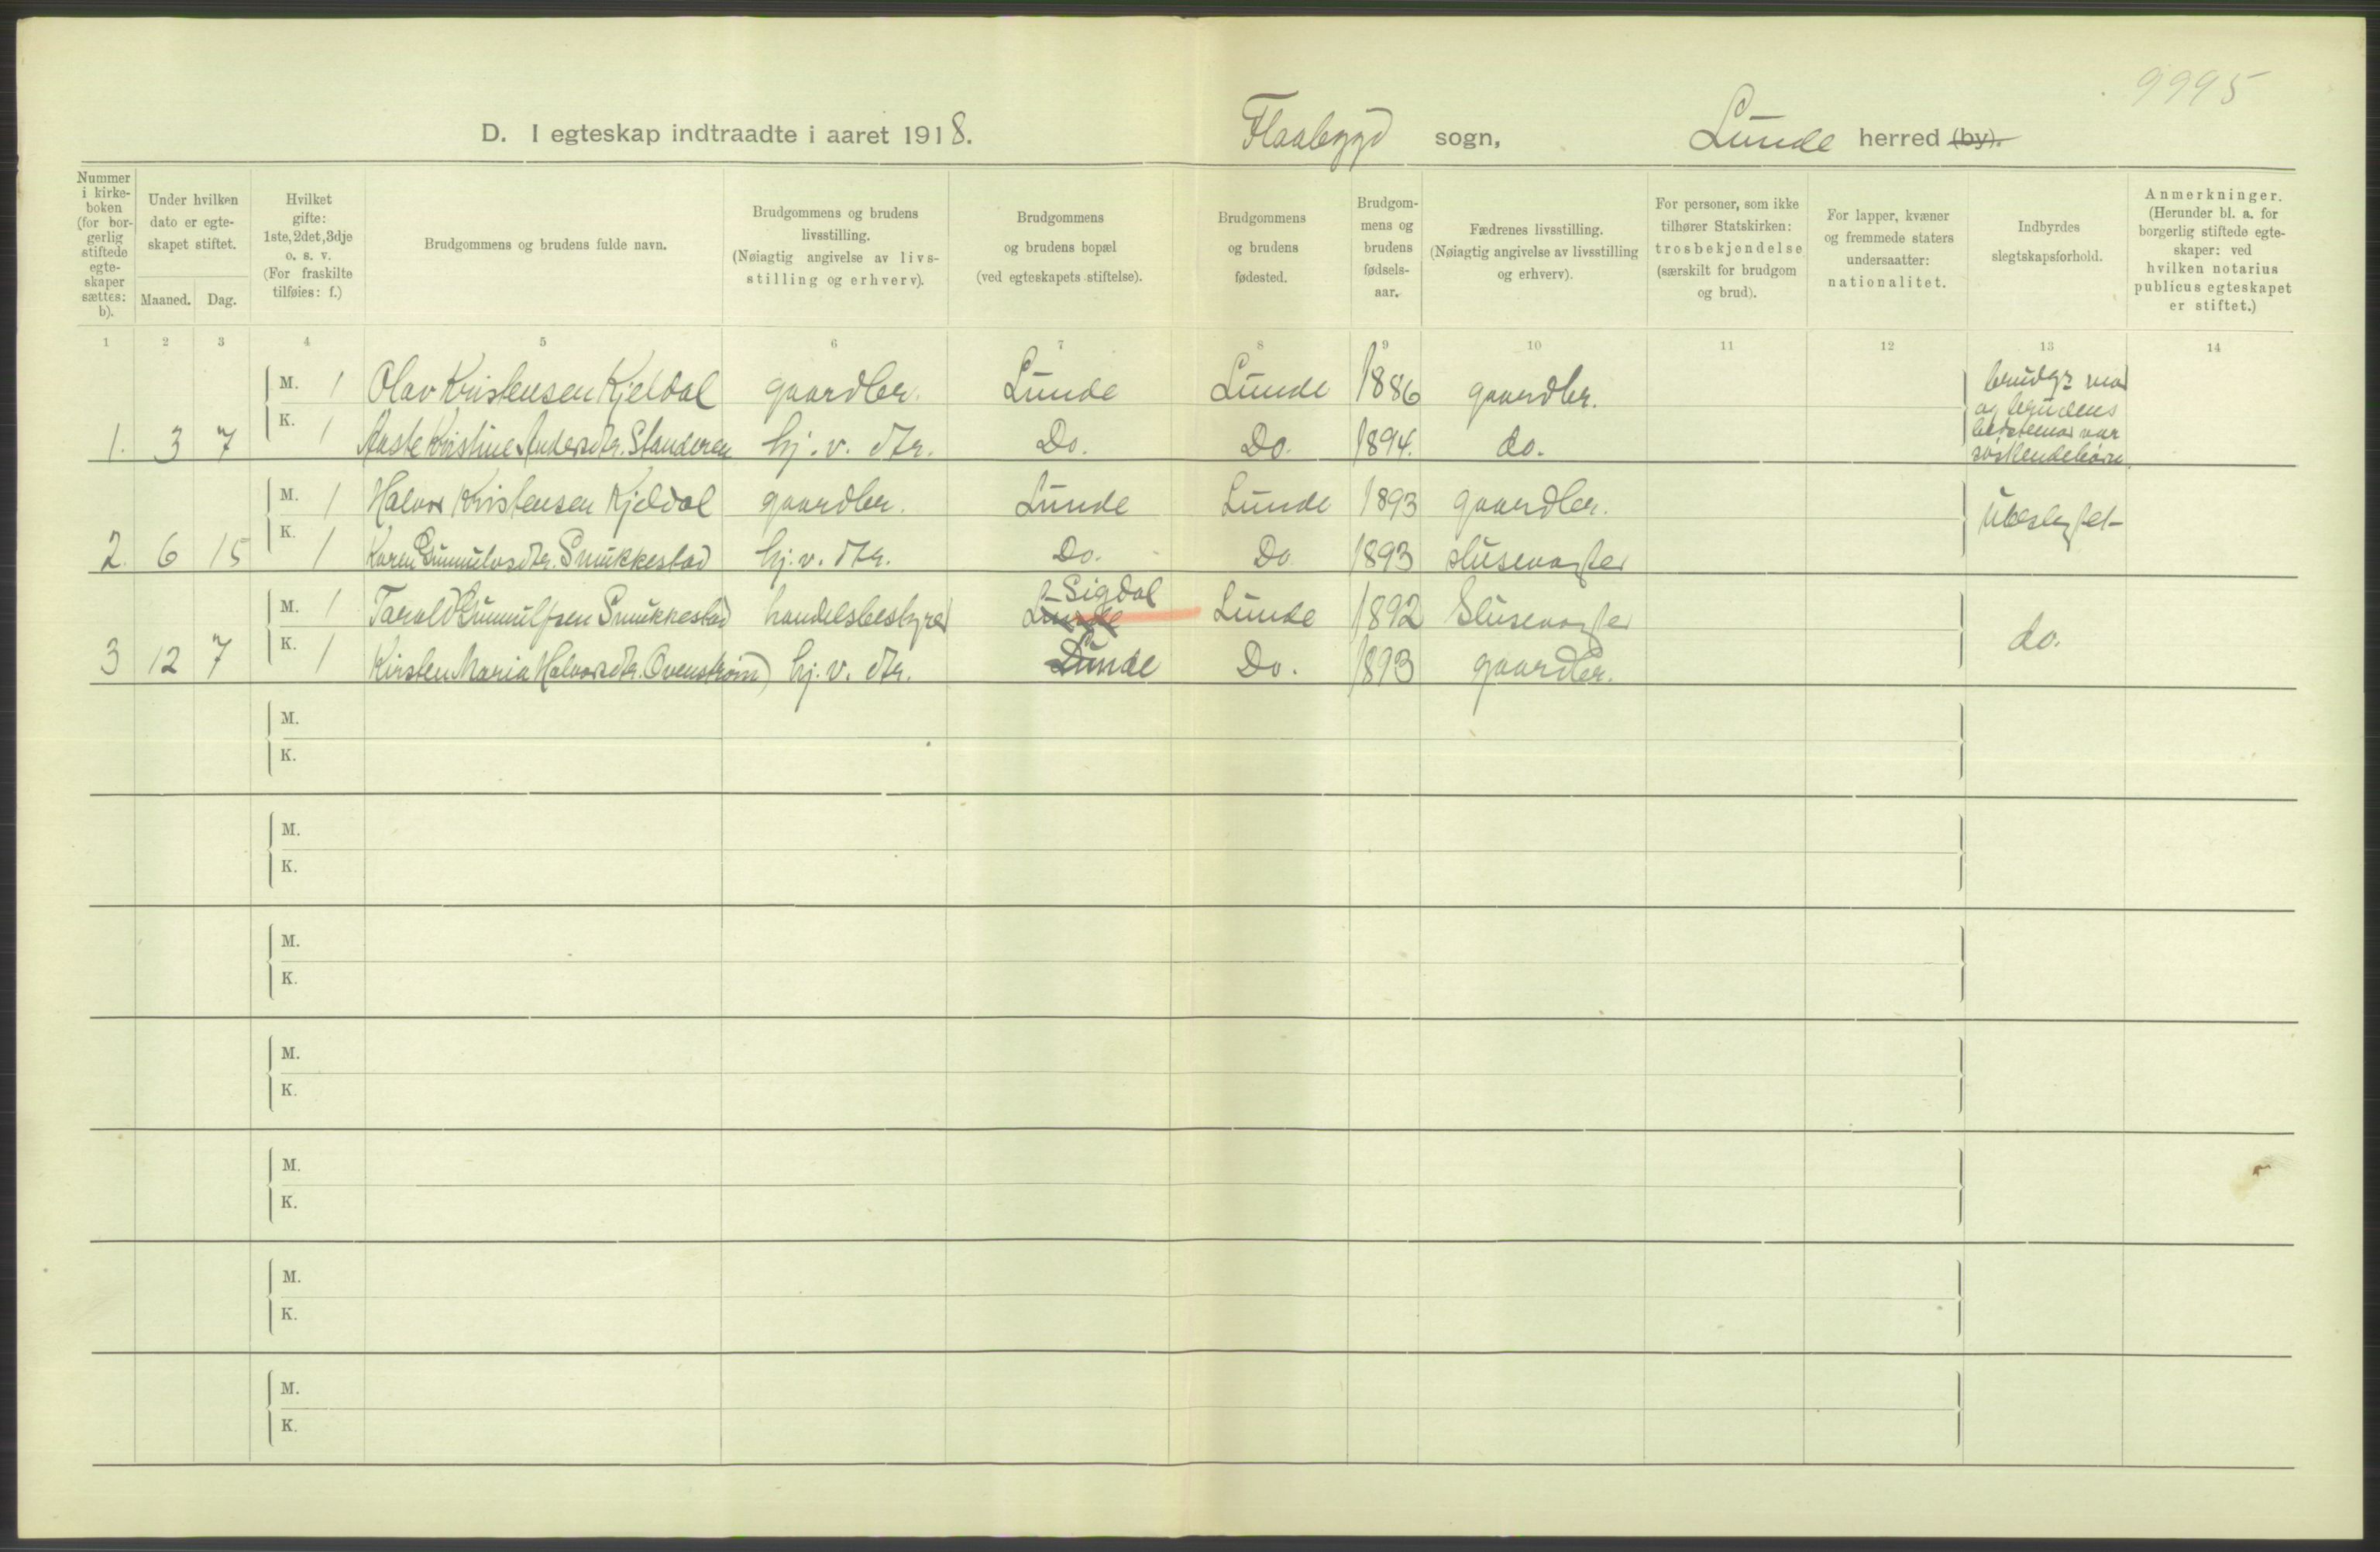 9995
D. I egteskap indtraadte i aaret 1918. Flaabygd sogn, Lunde herred (by).
Nummer i kirke-boken (for bor-gerlig stiftede egte-skaper sættes: b).
Under hvilken dato er egte-skapet stiftet.
Maaned. Dag.
Hvilket gifte: 1ste, 2det, 3dje o. s. v. (For fraskilte tilføies: f.)
Brudgommens og brudens fulde navn.
Brudgommens og brudens livsstilling. (Nøiagtig angivelse av livs-stilling og erhverv).
Brudgommens og brudens bopæl (ved egteskapets stiftelse).
Brudgommens og brudens fødested.
Brudgom-mens og brudens fødsels-aar.
Fædrenes livsstilling. (Nøiagtig angivelse av livsstilling og erhverv).
For personer, som ikke tilhører Statskirken: trosbekjendelse (særskilt for brudgom og brud).
For lapper, kvæner og fremmede staters undersaatter: nationalitet.
Indbyrdes slegtskapsforhold.
Anmerkninger. (Herunder bl. a. for borgerlig stiftede egte-skaper: ved hvilken notarius publicus egteskapet er stiftet.)
1 2 3 4 5 6 7 8 9 10 11 12 13 14
M. 1 Olav Kristensen Kjeldal gaardbr. Lunde Lunde 1886 gaardbr.
1. 3 7 K. 1 Aaste Kirstine Andersdtr. Slanderen hj. v. dtr. Do. Do. 1894. do.
brudg: mor
og brudens
bestemor var
søskendebørn.
M. 1 Halvor Kristensen Kjeldal gaardbr. Lunde Lunde 1893 gaardbr.
2. 6 15 K. 1 Karen Gunnulvsdtr. Smukkestad hj. v. dtr. Do. Do 1893 slusevogter
Ubeslegtet
Sigdal
M. 1 Tarald Gunnulfsen Smukkestad handelsbestyrer Lunde Lunde 1892 Slusevogter
3 12 7 K. 1 Kirsten Maria Halvorsdtr. Ovenstrøm hj. v. dtr. Lunde Do. 1893 gaardbr.
do.
M.
K.
M.
K.
M.
K.
M.
K.
M.
K.
M.
K.
M.
K.